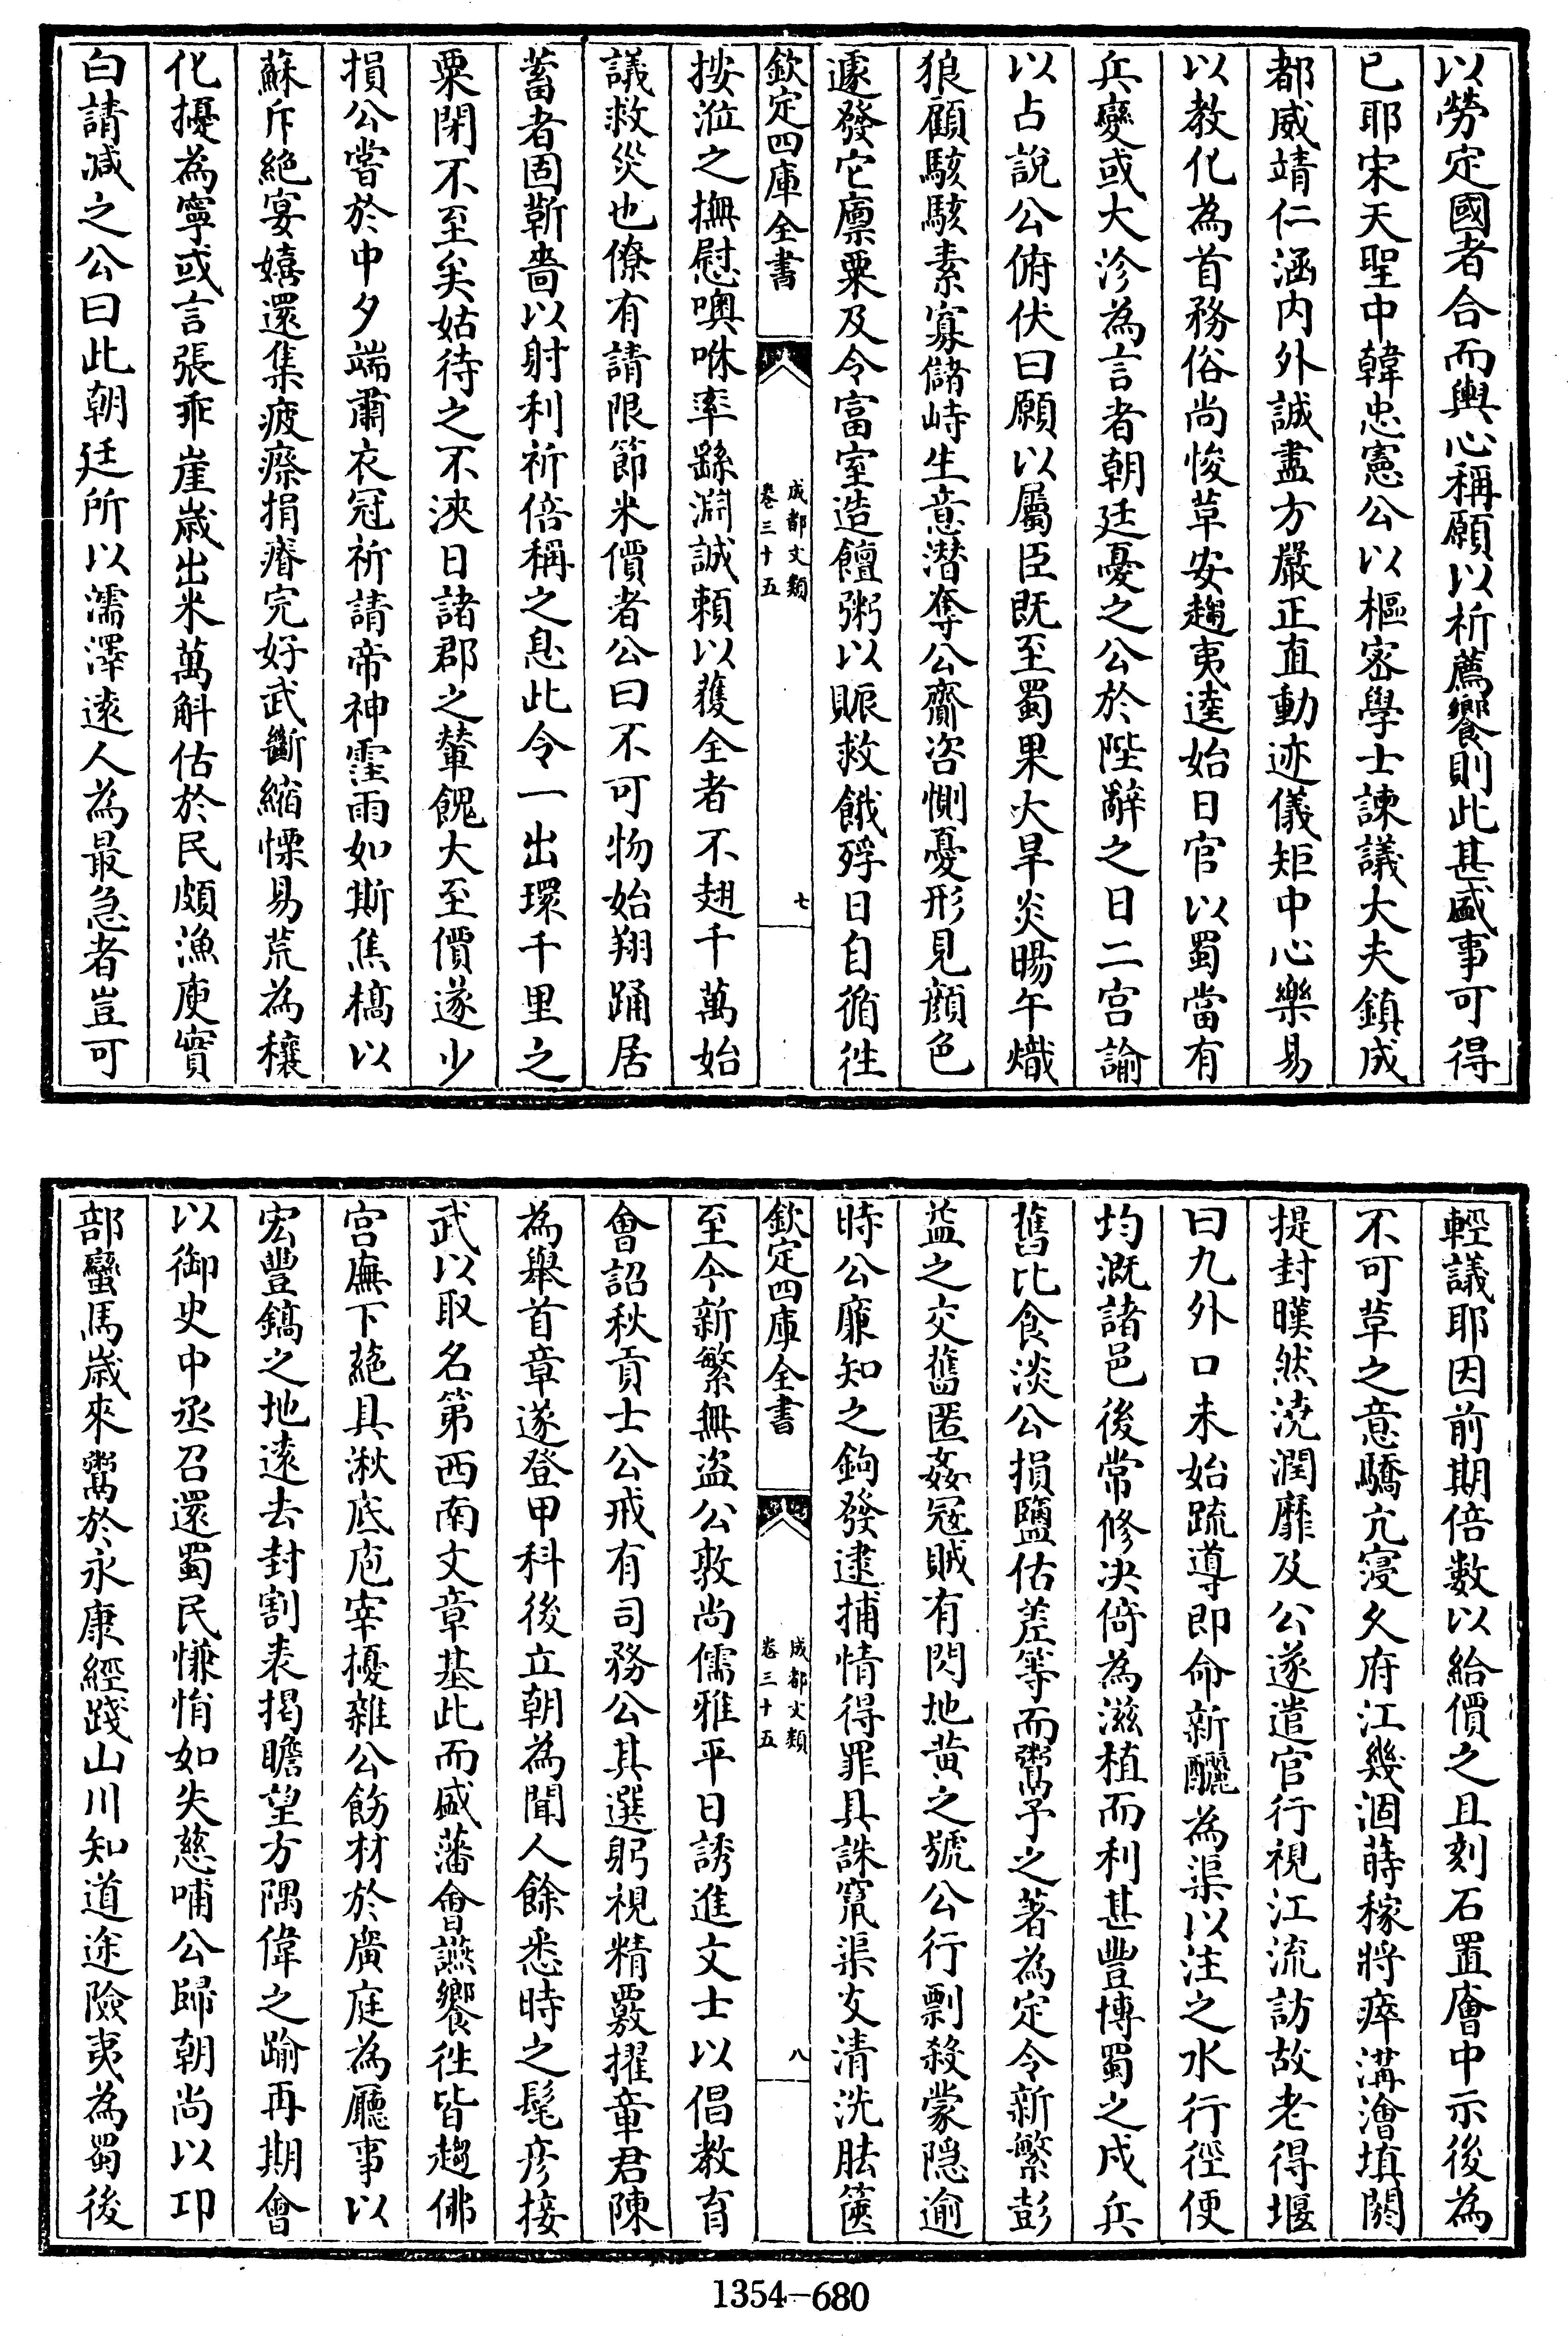 以勞定國者合而輿心稱願以祈薦饗則此甚盛事可得
已耶宋天聖中韓忠憲公以樞密學士諫議大夫鎮成
都威靖仁涵内外誠盡方嚴正直動迹儀矩中心樂易
以教化為首務俗尚悛草安趨夷逵始日官以蜀當有
兵變或大沴為言者朝廷憂之公於陛辭之日二宫諭
以占說公俯伏曰願以屬臣既至蜀果大旱炎暘午熾
狼顧駭駭素寡儲峙生意潛奪公齎咨惻憂形見顔色
遽發它廪粟及令富室造饘粥以賑救餓殍日自循徃
欽定四庫全書
成都文類
卷三十五
七
按涖之撫慰噢咻率繇淵誠頼以獲全者不翅千萬始
議救災也僚有請限節米價者公曰不可物始翔踊居
蓄者固靳嗇以射利祈倍稱之息此令一出環千里之
粟閉不至矣姑待之不浹日諸郡之輦餽大至價遂少
損公嘗於中夕端肅衣冠祈請帝神霔雨如斯焦槁以
蘇斥絶宴嬉還集疲瘵捐瘠完好武斷縮慄易荒為穰
化擾為寧或言張乖崖歳出米萬斛估於民頗漁庾實
白請减之公曰此朝廷所以濡澤逺人為最急者豈可
輕議耶因前期倍數以給價之且刻石置廥中示後為
不可草之意驕亢寖久府江幾涸蒔稼將瘁溝澮填閼
提封暵然澆潤靡及公遂遣官行視江流訪故老得堰
曰九外口未始疏導即命新釃為渠以注之水行徑便
均溉諸邑後常修决倚為滋植而利甚豐博蜀之戍兵
舊比食淡公損鹽估差等而鬻予之著為定令新繁彭
益之交舊匿姦冦賊有閃地黄之號公行剽殺蒙隐逾
時公亷知之鉤發逮捕情得罪具誅竄渠支清洗胠篋
欽定四庫全書
成都文類
卷三十五
八
至今新繁無盗公敦尚儒雅平日誘進文士以倡教育
會詔秋貢士公戒有司務公其選躬視精覈擢章君陳
為舉首章遂登甲科後立朝為聞人餘悉時之髦彦接
武以取名第西南文章基此而盛藩會讌饗徃皆趨佛
宫廡下蕝具湫底庖宰擾雜公飭材於廣庭為廳事以
宏豐鎬之地逺去封割表揭瞻望方隅偉之踰再期會
以御史中丞召還蜀民慊悁如失慈哺公歸朝尚以卭
部蠻馬歳來鬻於永康經踐山川知道途險夷為蜀後
1354-680